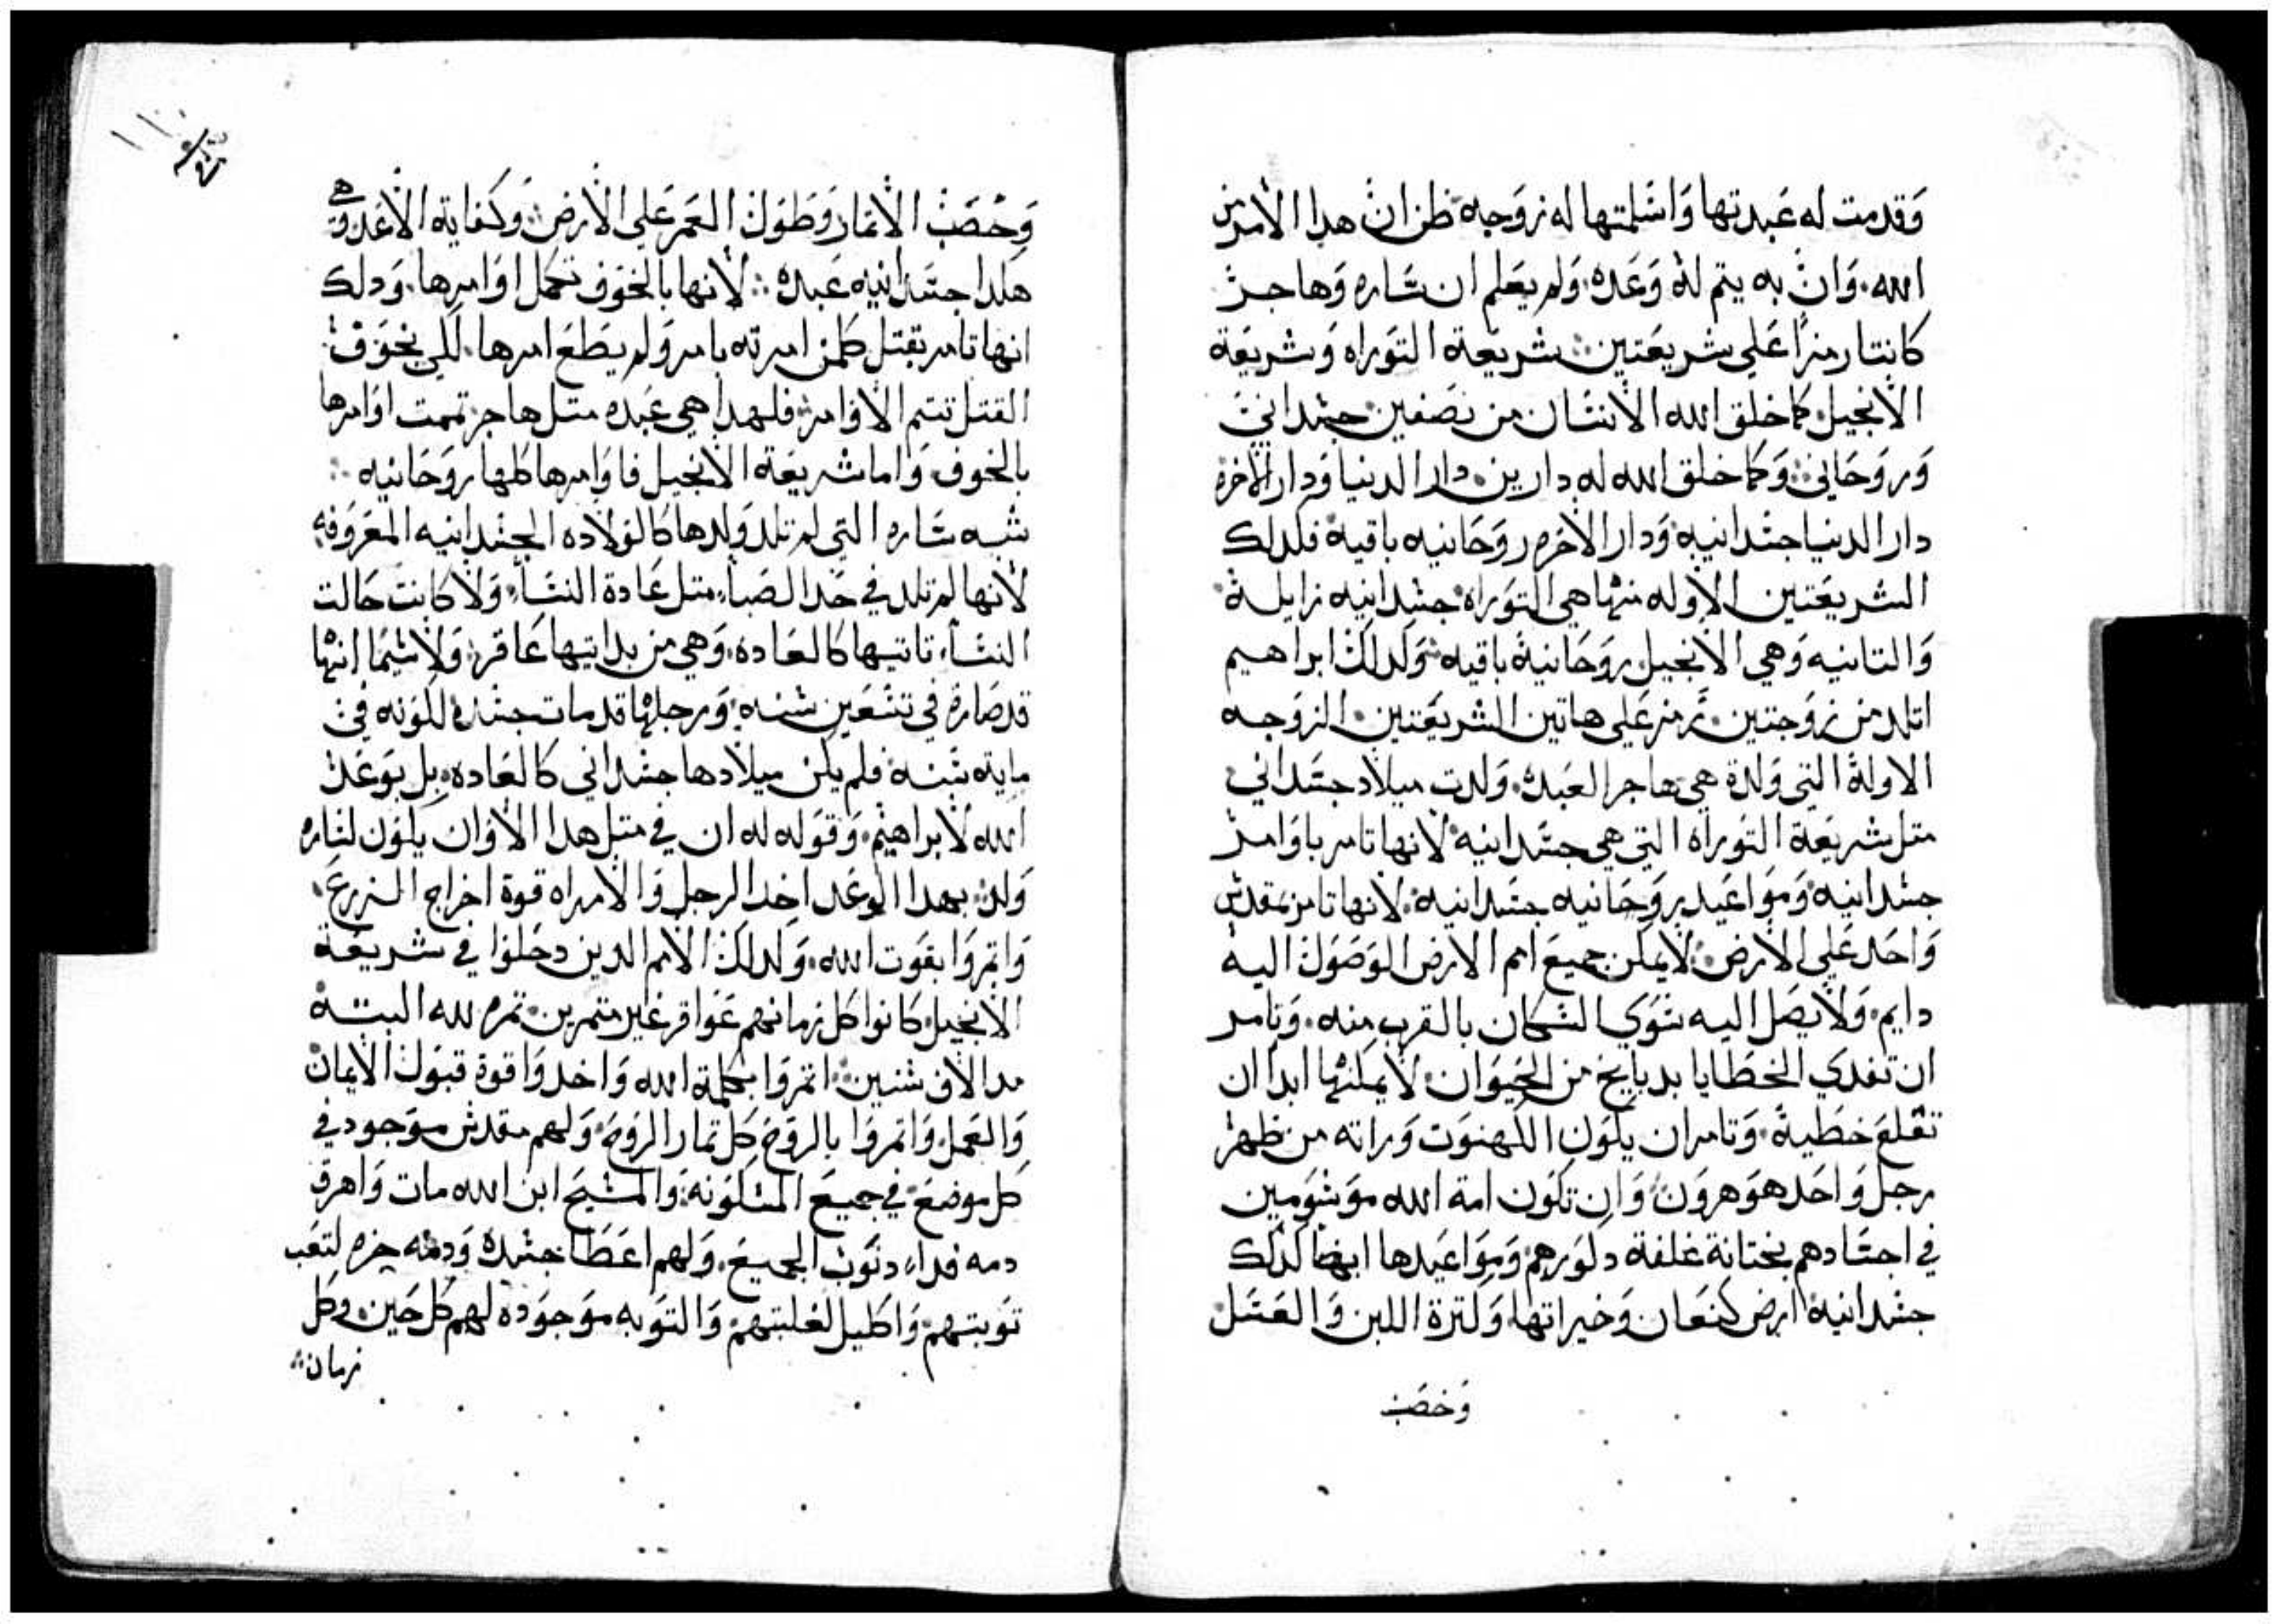 وقدمت له عبدتها واسلمتها له زوجه ظن ان هدا الامر من
الله. وان به يتم له وعده. ولم يعلم ان ساره وهاجر
كانتا رمزًا على شريعتين. شريعة التوراه وشريعة
الانجيل. كما خلق الله الانسان من نصفين جسداني
وروحاني. وكما خلق الله له دارين. دار الدنيا ودار الاخره
دار الدنيا جسدانيه ودار الاخره روحانيه باقيه فكدلك
الشريعتين الاوله منها هي التوراه جسدانيه زايله
والتانيه وهي الانجيل روحانية باقيه وكدلك ابراهيم
اتلد من زوجتين. رمز على هاتين الشريعتين. الزوجه
الاولة التي ولدة هي هاجر العبده. ولدت ميلاد جسداني
متل شريعة التوراه التي هي جسدانيه لانها تامر باوامر
جسدانيه ومواعيد روحانيه جسدانيه. لانها تامر بمقدس
واحد على الارض لا يمكن جميع امم الارض الوصول اليه
دايم. ولا يصل اليه سوى السكان بالقرب منه. وتامر
ان تفدي الخطايا بدبايح من الحيوان لا يمكنها ابدا ان
تقلع خطية. وتامر ان يكون الكهنوت وراته من ظهر
رجل واحد هو هرون وان تكون امة الله موسومين
في اجسادهم بختانة غلفة دكورهم ومواعيدها ايضا كدلك
جسدانية ارض كنعان وخيراتها وكترة اللبن والعسل
وخصب
وخصب الاتمار وطول العمر على الارض وكفاية الاعدا وهي
هكدا جسدانيه عبده لانها بالخوف تكمل اوامرها. ودلك
انها تامر بقتل كلمن امرته بامر ولم يطع امرها. لكي بخوف
القتل تتم الاوامر فلهدا هي عبده متل هاجر تممت اوامرها
بالخوف واما شريعة الانجيل فاوامرها كلها روحانيه
شبه ساره التي لم تلد ولدها كالولاده الجسدانيه المعروفه
لانها لم تلد في حد الصبا. متل عادة النسا. ولا كانت حالت
النسا. تاتيها كالعاده. وهي من بدايتها عاقر ولا سيما انها
قد صارة في تسعين سنه ورجلها قد مات جسده لكونه في
ماية سنه فلم يكن ميلادها جسداني كالعاده. بل بوعد
الله لابراهيم. وقوله له ان في متل هدا الاوان يكون لساره
ولد بهدا الوعد اخد الرجل والامراه قوة اخراج الزرع.
واتمروا بقوت الله. وكدلك الامم الدين دخلوا في شريعة
الانجيل كانوا كل زمانهم عواقر غير متمرين تمره لله البتة
مدا الاف سنين اتمروا بكلمة الله واخدوا قوة قبول الايمان
والعمل. واتمروا بالروح كل تمار الروح ولهم مقدس موجود في
كل موضع في جميع المسكونة والمسيح ابن الله مات واهرق
دمه فدا دنوب الجميع. ولهم اعطا جسده ودمه
توبتهم واكليل لغلبتهم والتوبه موجوده لهم كل حين وكل
زمان